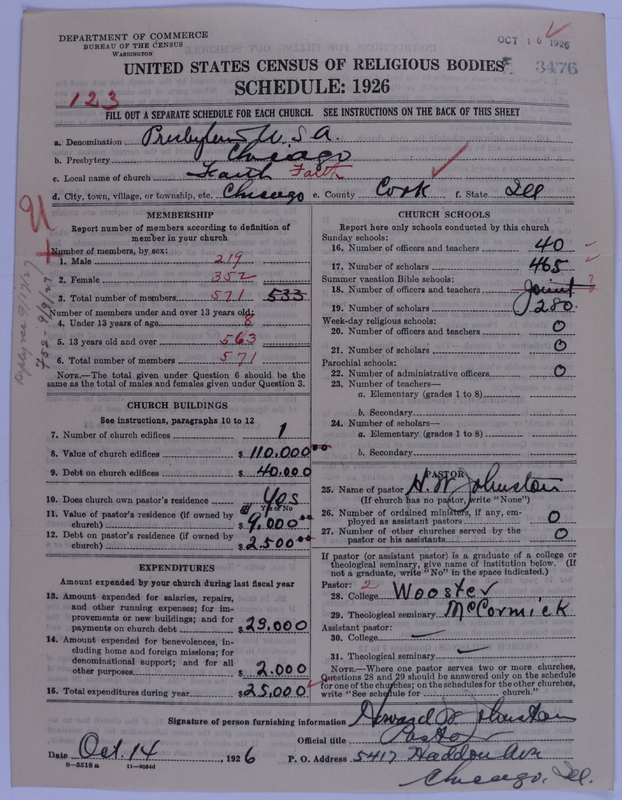 DEPARTMENT OF COMMERCE
BUREAU OF THE CENSUS
WASHINGTON
OCT 16 1926
UNITED STATES CENSUS OF RELIGIOUS BODIES
3476
SCHEDULE: 1926
123
FILL OUT A SEPARATE SCHEDULE FOR EACH CHURCH. SEE INSTRUCTIONS ON THE BACK OF THIS SHEET
a. Denomination Presbyterian U.S.A.
b. Presbytery Chicago
c. Local name of church Faith Faith
d. City, town, village, or township, etc. Chicago e. County Cook f. State Ill
MEMBERSHIP
Report number of members according to definition of
member in your church
Number of members, by sex:
1. Male 219
2. Female 352
3. Total number of members 571 533
Number of members under and over 13 years old:
4. Under 13 years of age 8
5. 13 years old and over 563
6. Total number of members 571
NOTE.—The total given under Question 6 should be
same as the total of males and females given under Question 3.
CHURCH BUILDINGS
See instructions, paragraphs 10 to 12
7. Number of church edifices 1
8. Value of church edifices $110,000 00
9. Debt on church edifices $40,000
10. Does church own pastor's residence Yes
Yes or No
11. Value of pastor's residence (if owned by
church) $9,000 00
12. Debt on pastor's residence (if owned by
church) $2,500 00
EXPENDITURES
Amount expended by your church during last fiscal year
13. Amount expended for salaries, repairs,
and other running expenses; for im-
provements or new buildings; and for
payments on church debt $23,000
14. Amount expended for benevolences, in-
cluding home and foreign missions; for
denominational support; and for all
other purposes $2,000
15. Total expenditures during year $25,000
CHURCH SCHOOLS
Report here only schools conducted by this church
Sunday schools:
16. Number of officers and teachers 40
17. Number of scholars 465
Summer vacation Bible schools:
18. Number of officers and teachers Joint ?
19. Number of scholars 280
Week-day religious schools:
20. Number of officers and teachers 0
21. Number of scholars 0
Parochial schools:
22. Number of administrative officers 0
23. Number of teachers—
a. Elementary (grades 1 to 8)
b. Secondary
24. Number of scholars—
a. Elementary (grades 1 to 8)
b. Secondary
PASTOR
25. Name of pastor H. W. Johnston
(If church has no pastor, write "None")
26. Number of ordained ministers, if any, em-
ployed as assistant pastors 0
27. Number of other churches served by the
pastor or his assistants 0
If pastor (or assistant pastor) is a graduate of a college or
theological seminary, give name of institution below. (If
not a graduate, write "No" in the space indicated.)
Pastor: 2
28. College Wooster
29. Theological seminary McCormick
Assistant pastor:
30. College —
31. Theological seminary —
NOTE.—Where one pastor serves two or more churches,
Questions 28 and 29 should be answered only on the schedule
for one of the churches; on the schedules for the other churches,
write "See schedule for church."
Signature of person furnishing information Howard W. Johnston
Official title Pastor
Date Oct. 14, 1926 P. O. Address 5417 Haddon Ave
8—5518a 11—9064d
Chicago, Ill.